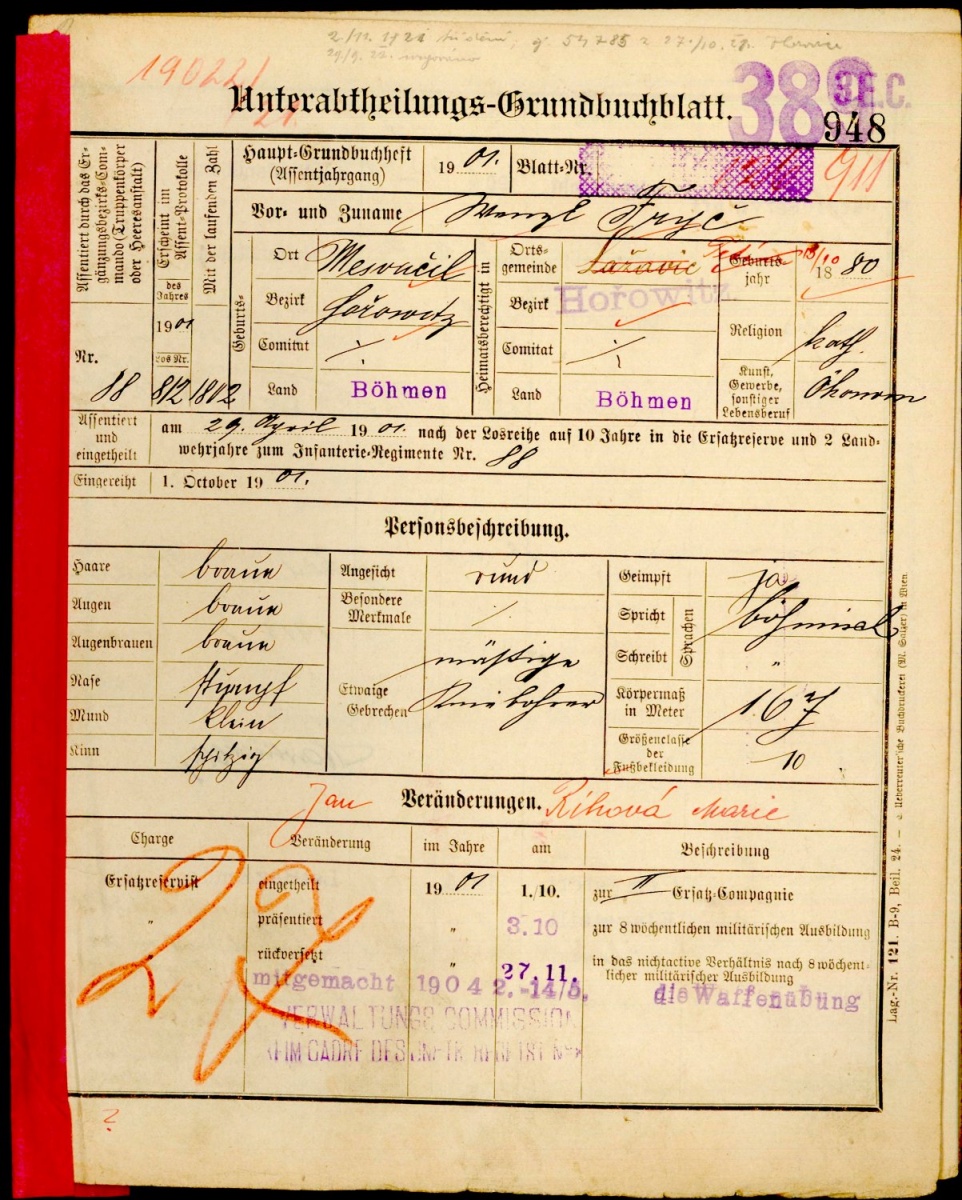 2./12. 1921
19022/
Unterabtheilungs-Grundbuchblatt.
38
3E.C.
948
Assentiert durch das Ergänzungsbezirks-Commando (Truppenkörper oder Heeresanstalt)
Nr. 88
Erscheint im Assent-Protokolle
des Jahres
1901
Los Nr.
812
Mit der laufenden Zahl
1802
Haupt-Grundbuchheft
(Assentjahrgang)
1901.
Blatt-Nr.
911
Vor- und Zuname
Wenzl Fryč
Geburts-
Ort
Mesvačil
Bezirk
Hořowitz
Comitat
Land
Böhmen
Heimatsberechtigt in
Ortsgemeinde
Bezirk
Hořowitz.
Comitat
Land
Böhmen
Geburtsjahr
1880
Religion
kath.
Kunst, Gewerbe, sonstiger Lebensberuf
Ökonom
Assentiert und eingetheilt
am 29. April 1901. nach der Losreihe auf 10 Jahre in die Ersatzreserve und 2 Land-
wehrjahre zum Infanterie-Regimente Nr. 88
Eingereiht
1. October 1901.
Personsbeschreibung.
Haare
braun
Augen
braun
Augenbrauen
braun
Nase
stumpf
Mund
klein
Kinn
spitzig
Angesicht
rund
Besondere Merkmale
Etwaige Gebrechen
mässige
Kniebohrer
Geimpft
ja
Spricht
Schreibt
Sprachen
böhmisch
"
Körpermaß in Meter
1.67
Größenclasse der Fußbekleidung
10
Jan
Veränderungen.
Říhová Marie
Charge
Veränderung
im Jahre
am
Beschreibung
Ersatzreservist
eingetheilt
1901
1./10.
zur II Ersatz-Compagnie
"
präsentiert
"
3.10
zur 8 wöchentlichen militärischen Ausbildung
rückversetzt
"
27.11.
in das nichtactive Verhältnis nach 8 wöchent-
licher militärischer Ausbildung
mitgemacht 1904 2.-14/5. die Waffenübung
VERWALTUNGS COMMISSION
27
?
Lag.-Nr. 121. B-9, Beil. 24. — Ueberreuter'sche Buchdruckerei (M. Salzer) in Wien